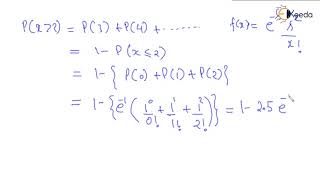 P(x>2) = P(3) + P(4) + ........
f(x) = e⁻¹ 1ˣ / x!
= 1 - P(x ≤ 2)
= 1 - { P(0) + P(1) + P(2) }
= 1 - { e⁻¹ ( 1⁰/0! + 1¹/1! + 1²/2! ) } = 1 - 2.5 e⁻